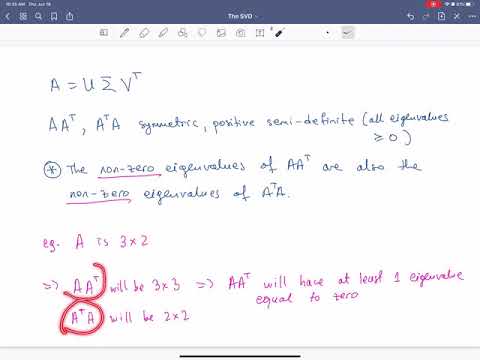 10:35 AM Thu Jun 18
The SVD
A = U Σ Vᵀ
AAᵀ, AᵀA symmetric, positive semi-definite (all eigenvalues
≥ 0)
⊛ The non-zero eigenvalues of AAᵀ are also the
non-zero eigenvalues of AᵀA.
eg. A is 3×2
=> AAᵀ will be 3×3 => AAᵀ will have at least 1 eigenvalue
equal to zero
AᵀA will be 2×2